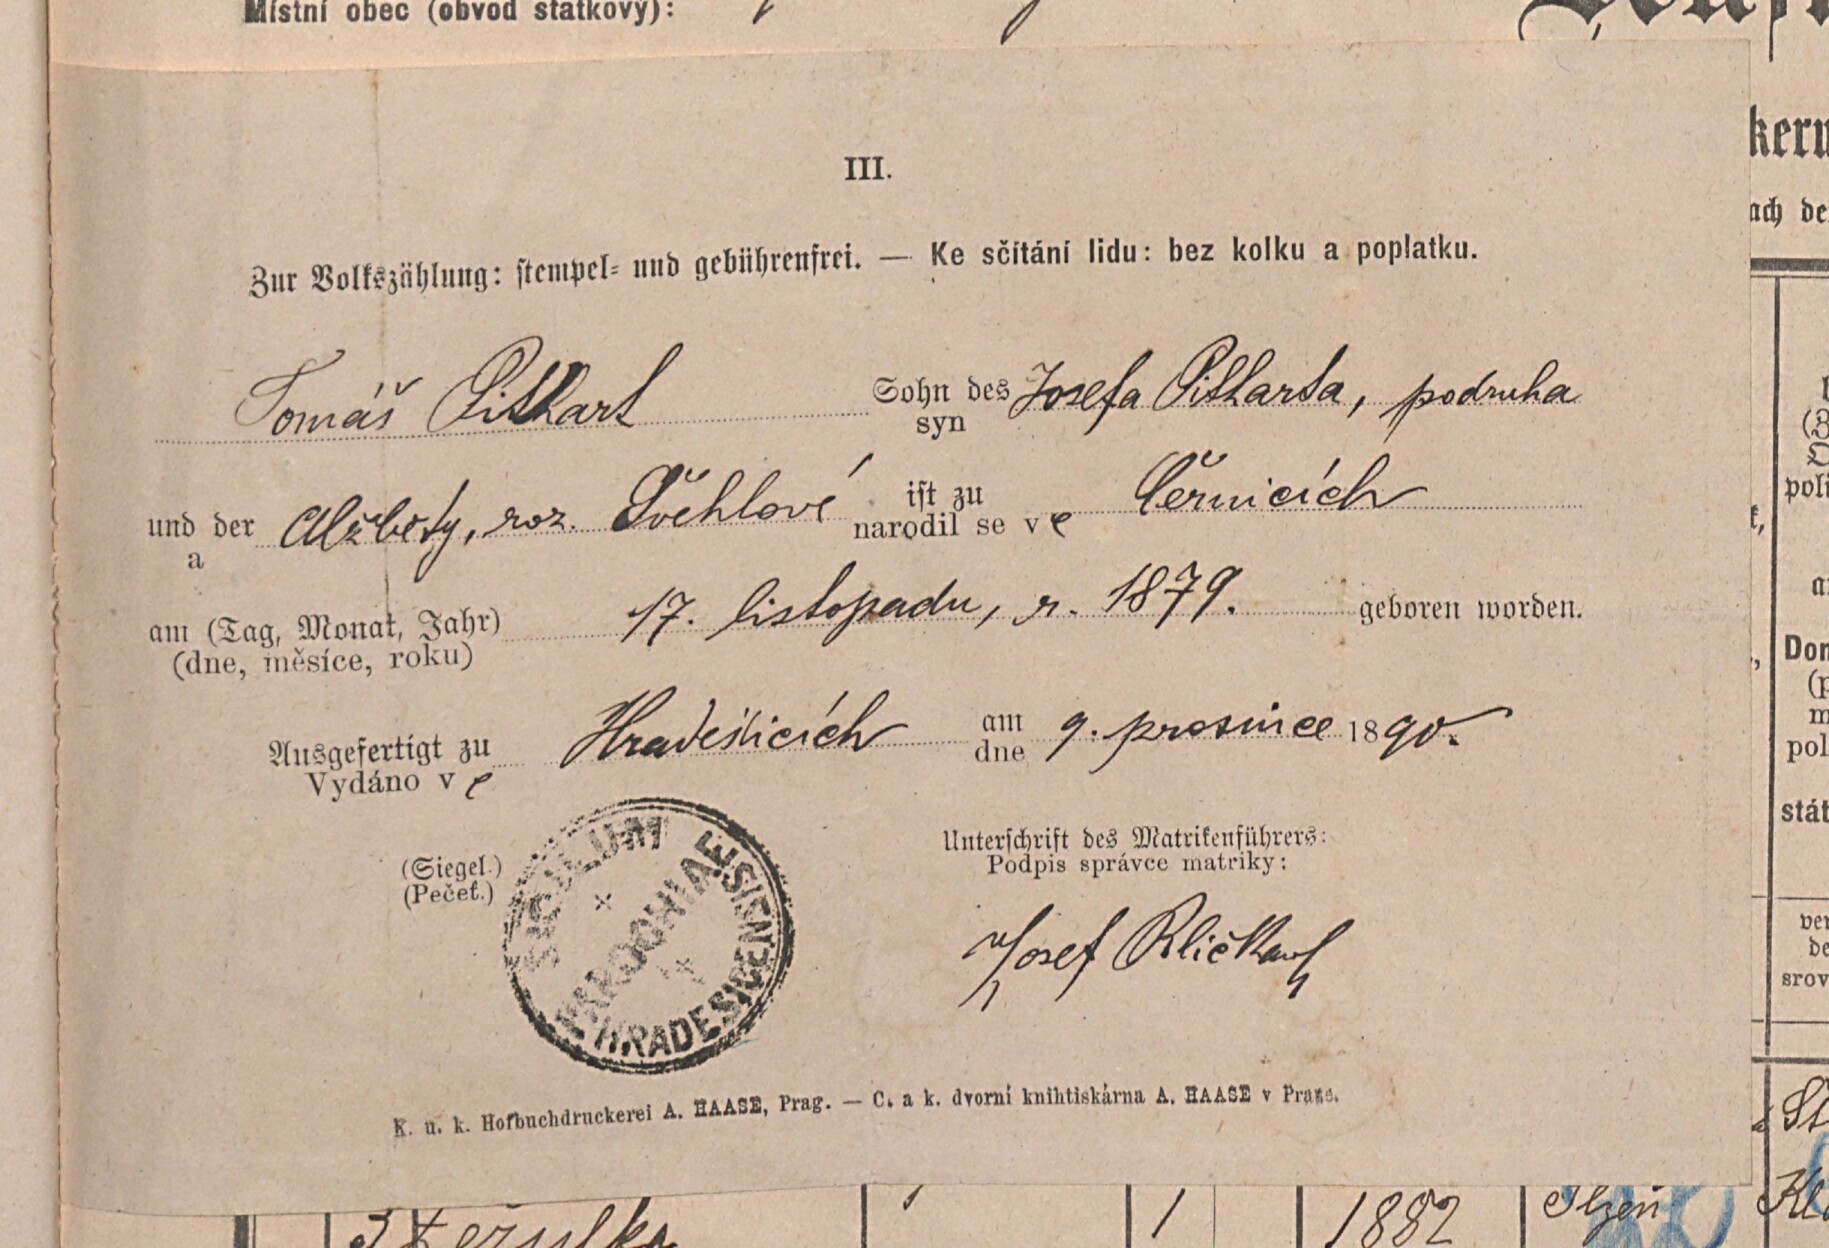 Místní obec (obvod statkový):
III.
Zur Volkszählung: stempel- und gebührenfrei. — Ke sčítání lidu: bez kolku a poplatku.
Tomáš Pithart Sohn des Josefa Pitharta, podruha
syn
und der Alžběty, roz. Švehlové ist zu Černicích
a narodil se v e
am (Tag, Monat, Jahr) 17. listopadu, r. 1879. geboren worden.
(dne, měsíce, roku)
Ausgefertigt zu Hradešicích am 9. prosince 1890.
Vydáno v e dne
(Siegel.)
(Pečeť.)
SIGILLUM PAROCHIAE HRADESICENSIS
Unterschrift des Matrikenführers:
Podpis správce matriky:
Josef
K. u. k. Hofbuchdruckerei A. HAASE, Prag. — C. a k. dvorní knihtiskárna A. HAASE v Praze.
1 1882 Plzeň